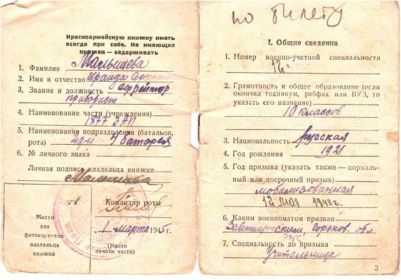 Красноармейскую книжку иметь
всегда при себе. Не имеющих
книжки — задерживать
1. Фамилия Малышева
2. Имя и отчество
3. Звание и должность Ефрейтор
приборист
4. Наименование части (учреждения)
1877 ЗАП
5. Наименование подразделения (батальон,
рота) батарея
6. № личного знака
Личная подпись владельца книжки
Малышева
Командир роты
Место
для
фотокарточки
владельца
книжки
1 марта 1945 г.
(Место
печати)
по билету
I. Общие сведения
1. Номер военно-учетной специальности
2. Грамотность и общее образование (если
окончил техникум, рабфак или ВУЗ, то
указать его название)
10 классов
3. Национальность русская
4. Год рождения 1921
5. Год призыва (указать также — нормаль-
ный или досрочный призыв)
мобилизованная
1943 г.
6. Каким военкоматом призван
горьков. обл.
7. Специальность до призыва
Учительница
3